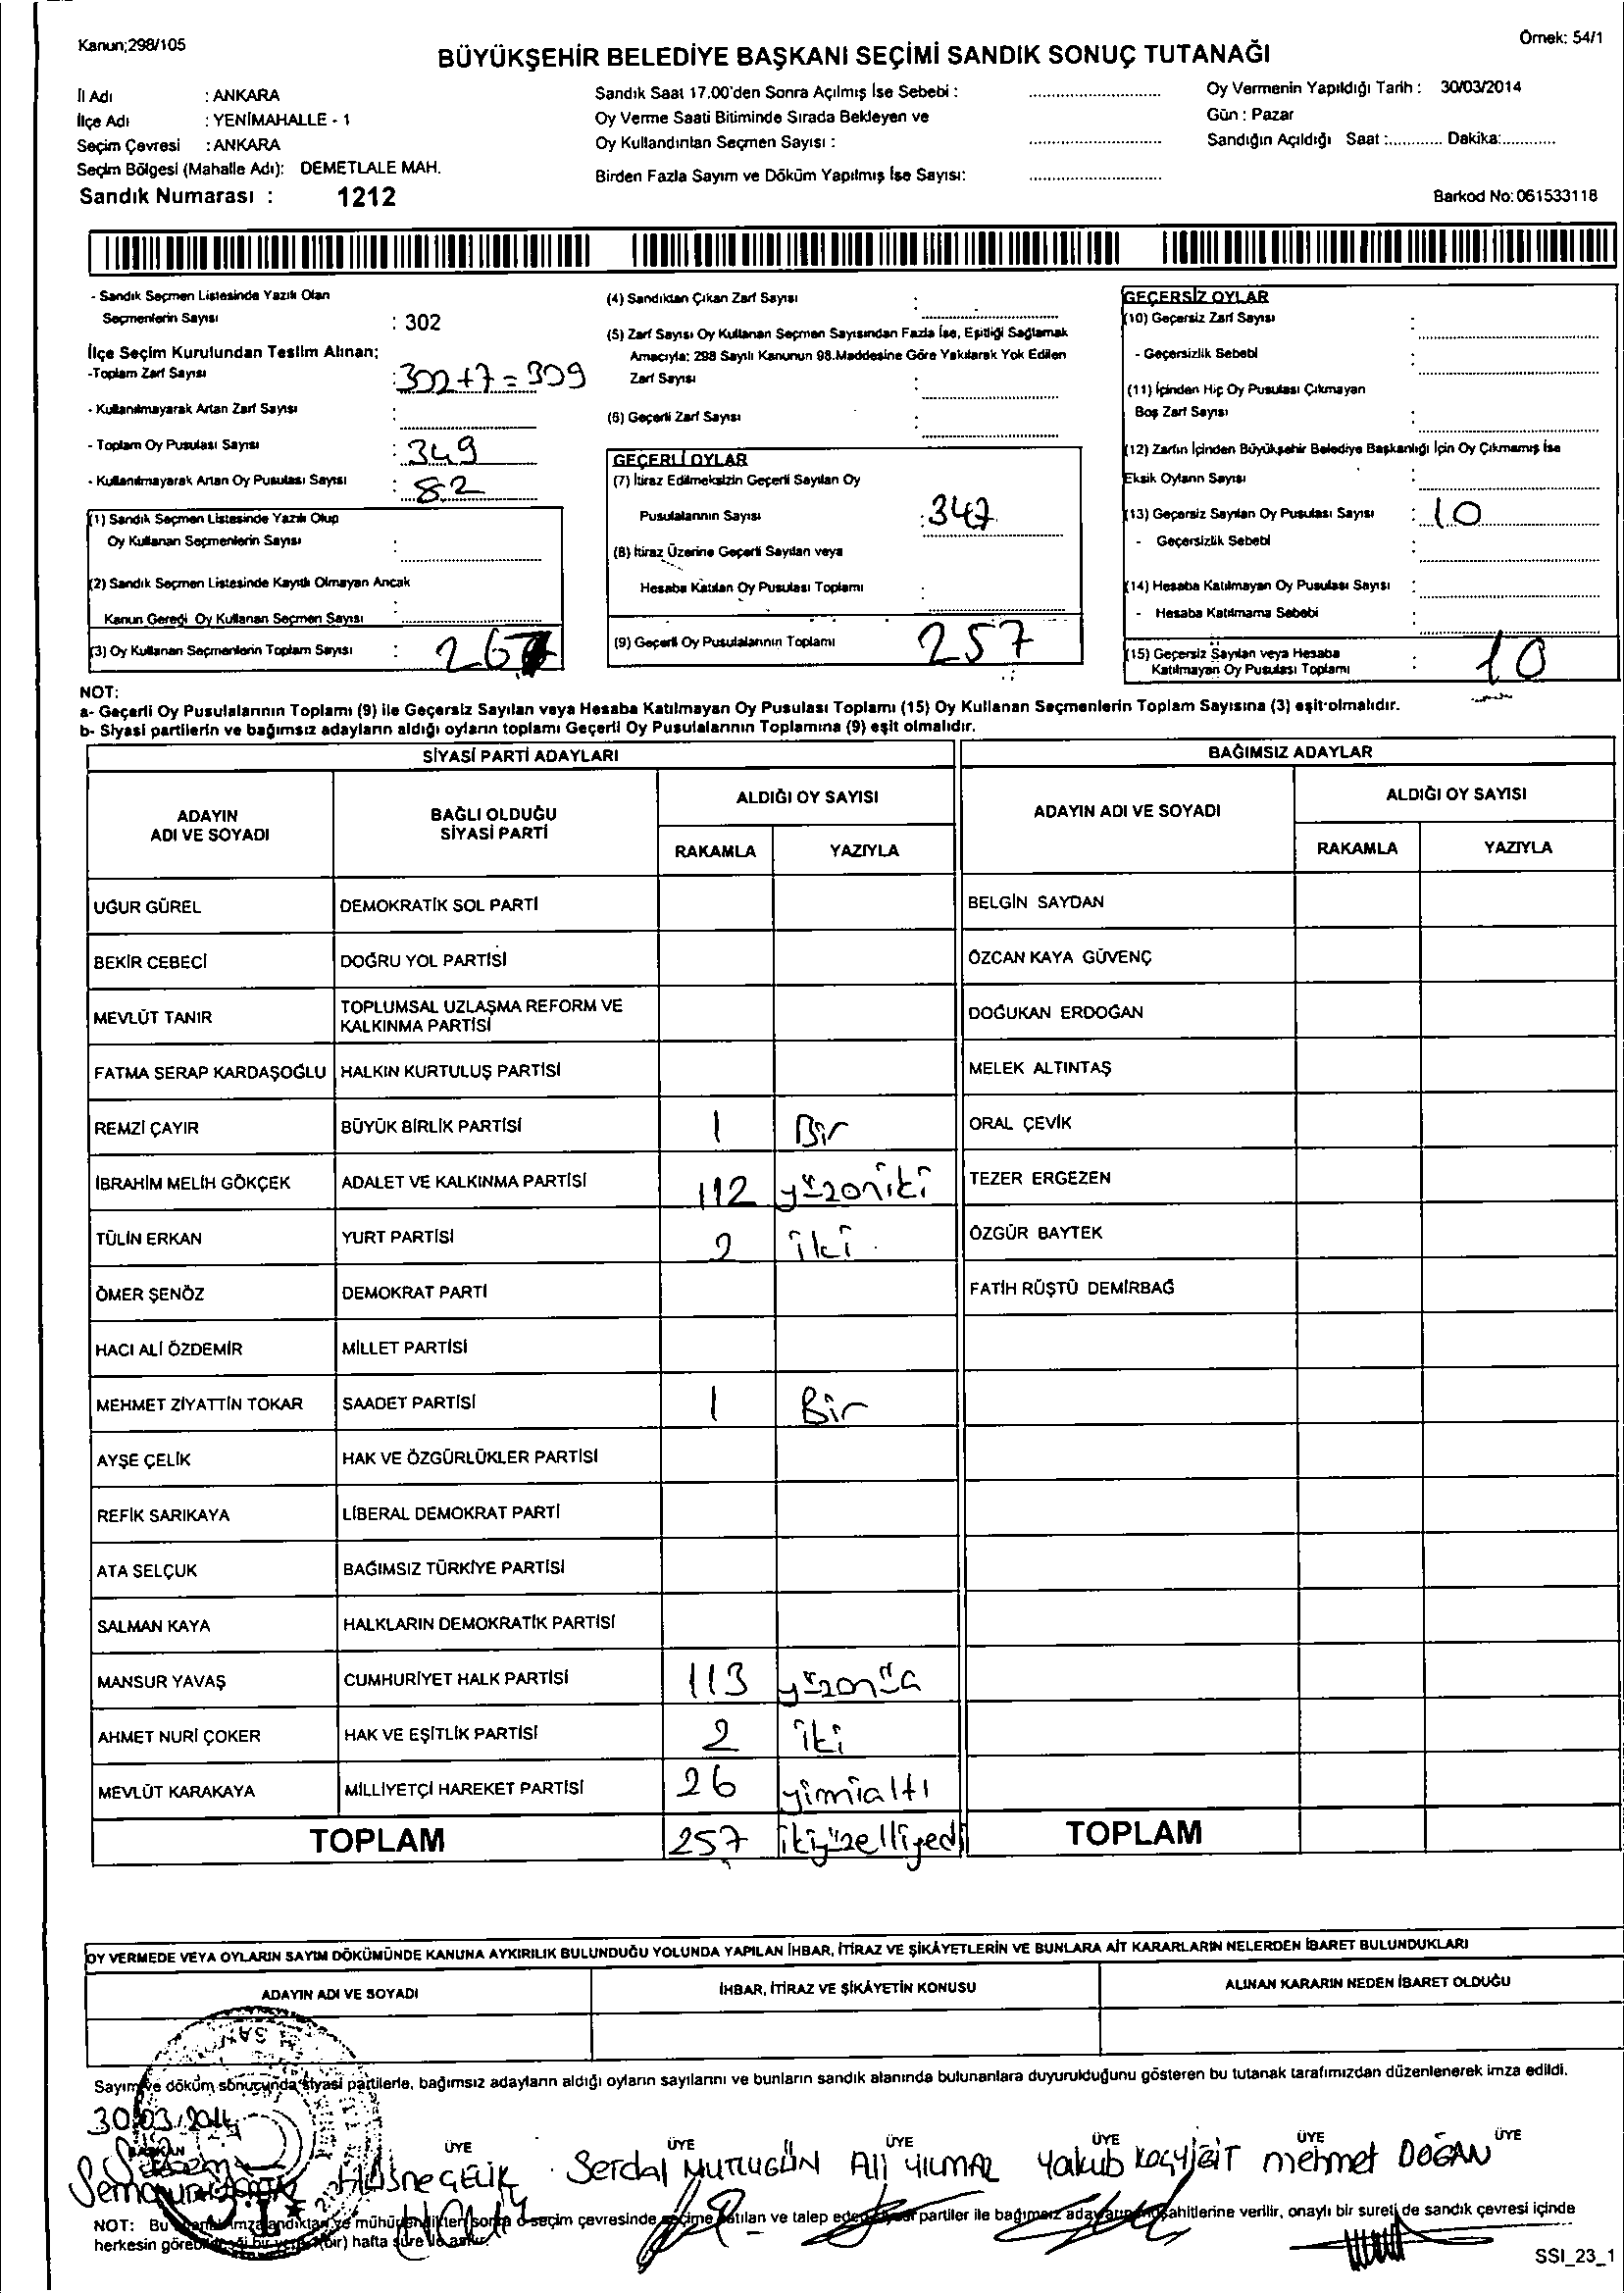 Kanun;298/105
Örnek: 54/1
BÜYÜKŞEHİR BELEDİYE BAŞKANI SEÇİMİ SANDIK SONUÇ TUTANAĞI
İl Adı : ANKARA
İlçe Adı : YENİMAHALLE - 1
Seçim Çevresi : ANKARA
Seçim Bölgesi (Mahalle Adı): DEMETLALE MAH.
Sandık Numarası : 1212
Sandık Saat 17.00'den Sonra Açılmış İse Sebebi :
Oy Verme Saati Bitiminde Sırada Bekleyen ve
Oy Kullandırılan Seçmen Sayısı :
Birden Fazla Sayım ve Döküm Yapılmış İse Sayısı:
Oy Vermenin Yapıldığı Tarih : 30/03/2014
Gün : Pazar
Sandığın Açıldığı Saat :............ Dakika:............
Barkod No: 061533118
- Sandık Seçmen Listesinde Yazılı Olan
Seçmenlerin Sayısı : 302
İlçe Seçim Kurulundan Teslim Alınan;
-Toplam Zarf Sayısı : 302+7=309
- Kullanılmayarak Artan Zarf Sayısı :
- Toplam Oy Pusulası Sayısı : 349
- Kullanılmayarak Artan Oy Pusulası Sayısı : 82
(1) Sandık Seçmen Listesinde Yazılı Olup
Oy Kullanan Seçmenlerin Sayısı :
(2) Sandık Seçmen Listesinde Kayıtlı Olmayan Ancak
Kanun Gereği Oy Kullanan Seçmen Sayısı :
(3) Oy Kullanan Seçmenlerin Toplam Sayısı : 267
(4) Sandıktan Çıkan Zarf Sayısı :
(5) Zarf Sayısı Oy Kullanan Seçmen Sayısından Fazla İse, Eşitliği Sağlamak
Amacıyla: 298 Sayılı Kanunun 98.Maddesine Göre Yakılarak Yok Edilen
Zarf Sayısı :
(6) Geçerli Zarf Sayısı :
GEÇERLİ OYLAR
(7) İtiraz Edilmeksizin Geçerli Sayılan Oy
Pusulalarının Sayısı : 347
(8) İtiraz Üzerine Geçerli Sayılan veya
Hesaba Katılan Oy Pusulası Toplamı :
(9) Geçerli Oy Pusulalarının Toplamı 257
GEÇERSİZ OYLAR
(10) Geçersiz Zarf Sayısı :
- Geçersizlik Sebebi :
(11) İçinden Hiç Oy Pusulası Çıkmayan
Boş Zarf Sayısı :
(12) Zarfın İçinden Büyükşehir Belediye Başkanlığı İçin Oy Çıkmamış İse
Eksik Oyların Sayısı :
(13) Geçersiz Sayılan Oy Pusulası Sayısı : 10
- Geçersizlik Sebebi :
(14) Hesaba Katılmayan Oy Pusulası Sayısı :
- Hesaba Katılmama Sebebi :
(15) Geçersiz Sayılan veya Hesaba
Katılmayan Oy Pusulası Toplamı : 10
NOT:
a- Geçerli Oy Pusulalarının Toplamı (9) ile Geçersiz Sayılan veya Hesaba Katılmayan Oy Pusulası Toplamı (15) Oy Kullanan Seçmenlerin Toplam Sayısına (3) eşit olmalıdır.
b- Siyasi partilerin ve bağımsız adayların aldığı oyların toplamı Geçerli Oy Pusulalarının Toplamına (9) eşit olmalıdır.
SİYASİ PARTİ ADAYLARI
BAĞIMSIZ ADAYLAR
ADAYIN
ADI VE SOYADI
BAĞLI OLDUĞU
SİYASİ PARTİ
ALDIĞI OY SAYISI
RAKAMLA YAZIYLA
ADAYIN ADI VE SOYADI
ALDIĞI OY SAYISI
RAKAMLA YAZIYLA
UĞUR GÜREL DEMOKRATİK SOL PARTİ BELGİN SAYDAN
BEKİR CEBECİ DOĞRU YOL PARTİSİ ÖZCAN KAYA GÜVENÇ
MEVLÜT TANIR TOPLUMSAL UZLAŞMA REFORM VE
KALKINMA PARTİSİ DOĞUKAN ERDOĞAN
FATMA SERAP KARDAŞOĞLU HALKIN KURTULUŞ PARTİSİ MELEK ALTINTAŞ
REMZİ ÇAYIR BÜYÜK BİRLİK PARTİSİ 1 Bir ORAL ÇEVİK
İBRAHİM MELİH GÖKÇEK ADALET VE KALKINMA PARTİSİ 112 yüzoniki TEZER ERGEZEN
TÜLİN ERKAN YURT PARTİSİ 2 iki ÖZGÜR BAYTEK
ÖMER ŞENÖZ DEMOKRAT PARTİ FATİH RÜŞTÜ DEMİRBAĞ
HACI ALİ ÖZDEMİR MİLLET PARTİSİ
MEHMET ZİYATTİN TOKAR SAADET PARTİSİ 1 Bir
AYŞE ÇELİK HAK VE ÖZGÜRLÜKLER PARTİSİ
REFİK SARIKAYA LİBERAL DEMOKRAT PARTİ
ATA SELÇUK BAĞIMSIZ TÜRKİYE PARTİSİ
SALMAN KAYA HALKLARIN DEMOKRATİK PARTİSİ
MANSUR YAVAŞ CUMHURİYET HALK PARTİSİ 113 yüzonüç
AHMET NURİ ÇOKER HAK VE EŞİTLİK PARTİSİ 2 iki
MEVLÜT KARAKAYA MİLLİYETÇİ HAREKET PARTİSİ 26 yimialtı
TOPLAM 257 ikiyüzelliyedi TOPLAM
OY VERMEDE VEYA OYLARIN SAYIM DÖKÜMÜNDE KANUNA AYKIRILIK BULUNDUĞU YOLUNDA YAPILAN İHBAR, İTİRAZ VE ŞİKÂYETLERİN VE BUNLARA AİT KARARLARIN NELERDEN İBARET BULUNDUKLARI
ADAYIN ADI VE SOYADI İHBAR, İTİRAZ VE ŞİKÂYETİN KONUSU ALINAN KARARIN NEDEN İBARET OLDUĞU
Sayım ve döküm sonucunda siyasi partilerle, bağımsız adayların aldığı oyların sayılarını ve bunların sandık alanında bulunanlara duyurulduğunu gösteren bu tutanak tarafımızdan düzenlenerek imza edildi.
30.03.2014
BAŞKAN ÜYE ÜYE ÜYE ÜYE ÜYE ÜYE
Hüsne ÇELİK Serdal MUTLUGÜN Ali YILMAZ Yakub KOÇYİĞİT mehmet DOĞAN
NOT: Bu sonra o seçim çevresinde seçime katılan ve talep eden partiler ile bağımsız verilir, onaylı bir sureti de sandık çevresi içinde
herkesin (bir) hafta süre ile asılır.
SSI_23_1